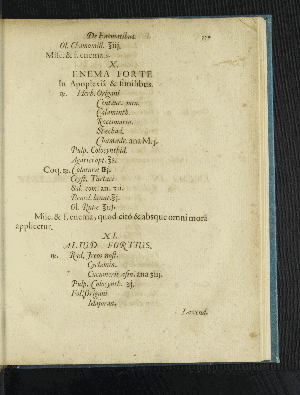 De Enematibus.
Ol. Chamomill. ʒiij.
Misc. & f. enema. s.
X.
ENEMA FORTE
In Apoplexiâ & similibus.
℞. Herb. Origani
Centaur. min.
Calaminth.
Rorismarin.
Stœchad.
Chamædr. ana M.j.
Pulp. Colocynthid.
Agarici opt.
Coq. ℞. Colaturæ
Cryst. Tartari
Sal. com. an.
Ol. Rutæ
Misc. & f. enema, quod citò & absque omni morâ
applicetur.
XI.
ALIUD FORTIUS.
℞. Rad. Ireos nost.
Cyclamin.
Cucumeris asin. ana ℥iij.
Pulp. Colocynth. ʒj.
Fol. Origani
Majoran.
Lavend.